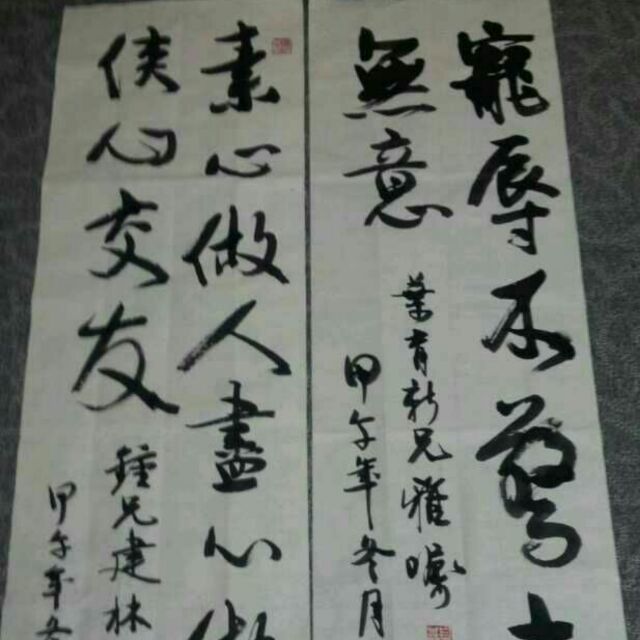 寵辱不驚
無意
葉育新兄雅囑
甲午年冬月
素心做人盡心做
俠心交友
鍾兄建林
甲午年冬